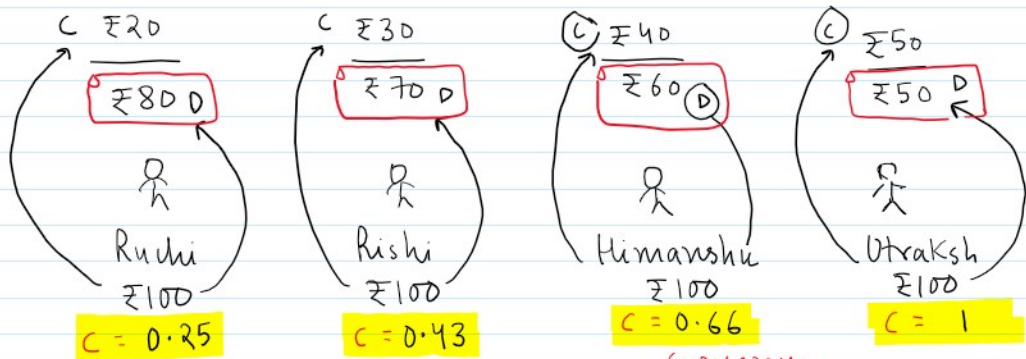 C ₹20
₹80 D
Ruchi
₹100
C = 0.25
C ₹30
₹70 D
Rishi
₹100
C = 0.43
C ₹40
₹60 D
Himanshu
₹100
C = 0.66
C ₹50
₹50 D
Utraksh
₹100
C = 1